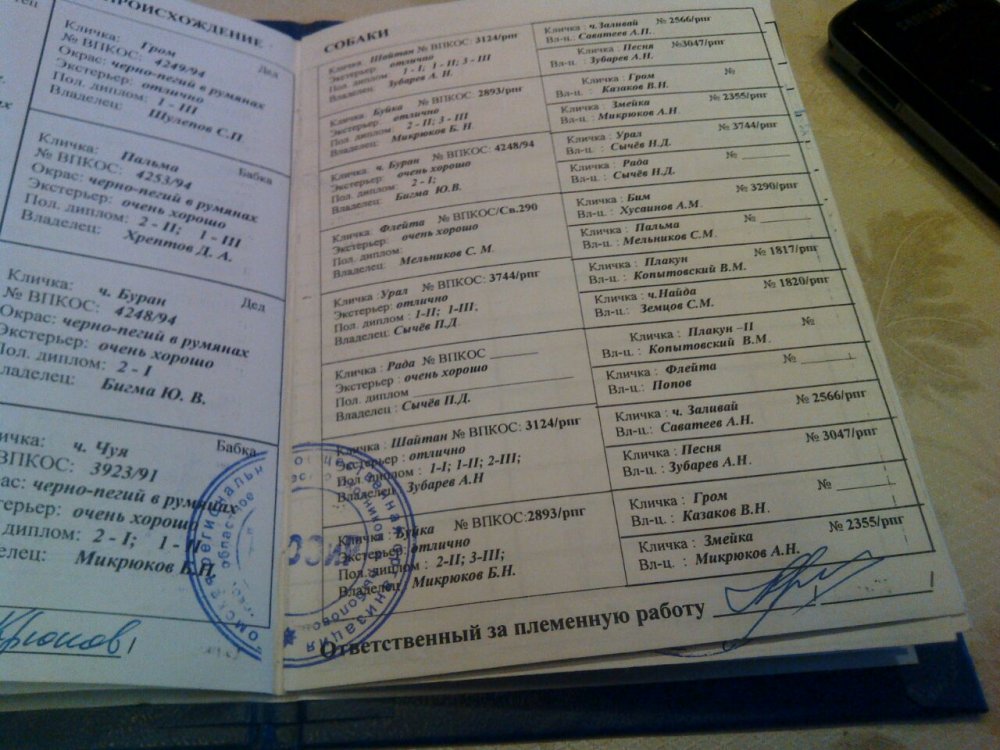 ПРОИСХОЖДЕНИЕ
Кличка: Гром Дед
№ ВПКОС: 4249/94
Окрас: черно-пегий в румянах
Экстерьер: отлично
Пол. диплом: 1 - III
Владелец: Шулепов С.П.
Кличка: Пальма Бабка
№ ВПКОС: 4253/94
Окрас: черно-пегий в румянах
Экстерьер: очень хорошо
Пол. диплом: 2 - II; 1 - III
Владелец: Хрептов Д. А.
Кличка: ч. Буран Дед
№ ВПКОС: 4248/94
Окрас: черно-пегий в румянах
Экстерьер: очень хорошо
Пол. диплом: 2 - I
Владелец: Бигма Ю. В.
Кличка: ч. Чуя Бабка
ВПКОС: 3923/91
Окрас: черно-пегий в румянах
Экстерьер: очень хорошо
диплом: 2 - I; 1 - II
Владелец: Микрюков Б.Н
СОБАКИ
Кличка: Шайтан № ВПКОС: 3124/рпг
Экстерьер: отлично
Пол. диплом: 1 - I; 1 - II; 3 - III
Владелец: Зубарев А. Н.
Кличка: Буйка № ВПКОС: 2893/рпг
Экстерьер: отлично
Пол. диплом: 2 - II; 3 - III
Владелец: Микрюков Б. Н.
Кличка: ч. Буран № ВПКОС: 4248/94
Экстерьер: очень хорошо
Пол. диплом: 2 - I;
Владелец: Бигма Ю.В.
Кличка: Флейта № ВПКОС/Св.290
Экстерьер: очень хорошо
Пол. диплом:
Владелец: Мельников С. М.
Кличка : Урал № ВПКОС: 3744/рпг
Экстерьер: отлично
Пол. диплом : 1-II; 1-III,
Владелец: Сычёв П.Д.
Кличка : Рада № ВПКОС
Экстерьер : очень хорошо
Пол. диплом
Владелец : Сычёв П.Д.
Кличка : Шайтан № ВПКОС: 3124/рпг
Экстерьер : отлично
Пол. диплом : 1-I; 1-II; 2-III;
Владелец: Зубарев А.Н
Кличка : Буйка № ВПКОС:2893/рпг
Экстерьер: отлично
Пол. диплом : 2-II; 3-III;
Владелец: Микрюков Б.Н.
Кличка : ч.Заливай № 2566/рпг
Вл-ц.: Саватеев А.П.
Кличка : Песня №3047/рпг
Вл-ц.: Зубарев А.Н.
Кличка : Гром №
Вл-ц. : Казаков В.Н.
Кличка : Змейка № 2355/рпг
Вл-ц. : Микрюков А.Н.
Кличка : Урал № 3744/рпг
Вл-ц. : Сычёв Н.Д.
Кличка : Рада №
Вл-ц. : Сычёв Н.Д.
Кличка : Бим № 3290/рпг
Вл-ц. : Хусаинов А.М.
Кличка : Пальма №
Вл-ц. : Мельников С.М.
Кличка : Плакун № 1817/рпг
Вл-ц. : Копытовский В.М.
Кличка : ч.Найда № 1820/рпг
Вл-ц.: Земцов С.М.
Кличка : Плакун –II №
Вл-ц. : Копытовский В.М.
Кличка : Флейта №
Вл-ц.: Попов
Кличка : ч. Заливай № 2566/рпг
Вл-ц. : Саватеев А.Н.
Кличка : Песня № 3047/рпг
Вл-ц. : Зубарев А.Н.
Кличка : Гром №
Вл-ц. : Казаков В.Н.
Кличка : Змейка № 2355/рпг
Вл-ц. : Микрюков А.Н.
Ответственный за племенную работу
SAMSUNG